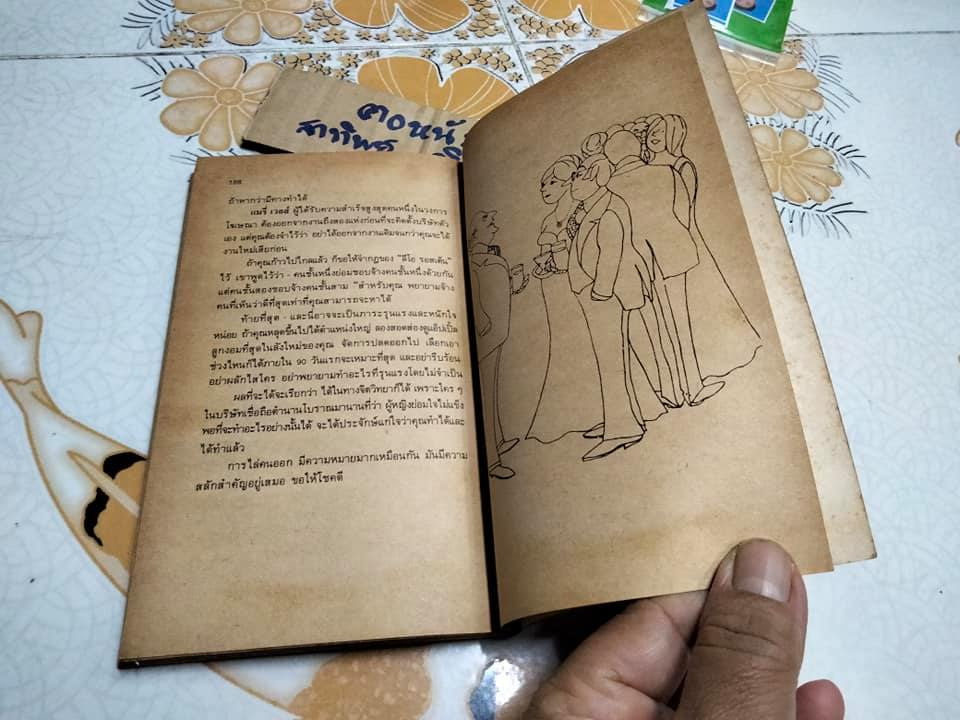 คอหนั
สาทิพย์
188
ถ้าหากว่ามีทางทำได้
แมรี่ เวลส์ ผู้ได้รับความสำเร็จสูงสุดคนหนึ่งในวงการ
โฆษณา ต้องออกจากงานถึงสองแห่งก่อนที่จะคิดตั้งบริษัทตัว
เอง แต่คุณต้องจำไว้ว่า อย่าได้ออกจากงานเดิมจนกว่าคุณจะได้
งานใหม่เสียก่อน
ถ้าคุณก้าวไปไกลแล้ว ก็ขอให้จำกฎของ "ลีโอ รอสเต็น"
ไว้ เขาพูดไว้ว่า - คนชั้นหนึ่งย่อมชอบจ้างคนชั้นหนึ่งด้วยกัน
แต่คนชั้นสองชอบจ้างคนชั้นสาม "สำหรับคุณ พยายามจ้าง
คนที่เห็นว่าดีที่สุดเท่าที่คุณสามารถจะหาได้
ท้ายที่สุด - และนี่อาจจะเป็นภาระรุนแรงและหนักใจ
หน่อย ถ้าคุณหลุดขึ้นไปได้ตำแหน่งใหญ่ ลองสอดส่องดูแอ๊ปเปิ้ล
ลูกงอมที่สุดในลังใหม่ของคุณ จัดการปลดออกไป เลือกเอา
ช่วงไหนก็ได้ภายใน 90 วันแรกจะเหมาะที่สุด และอย่ารีบร้อน
อย่าผลักไสใคร อย่าพยายามทำอะไรที่รุนแรงโดยไม่จำเป็น
ผลที่จะได้จะเรียกว่า ได้ในทางจิตวิทยาก็ได้ เพราะใคร ๆ
ในบริษัทเชื่อถือตำนานโบราณมานานที่ว่า ผู้หญิงย่อมใจไม่แข็ง
พอที่จะทำอะไรอย่างนั้นได้ จะได้ประจักษ์แก่ใจว่าคุณทำได้และ
ได้ทำแล้ว
การไล่คนออก มีความหมายมากเหมือนกัน มันมีความ
สลักสำคัญอยู่เสมอ ขอให้โชคดี